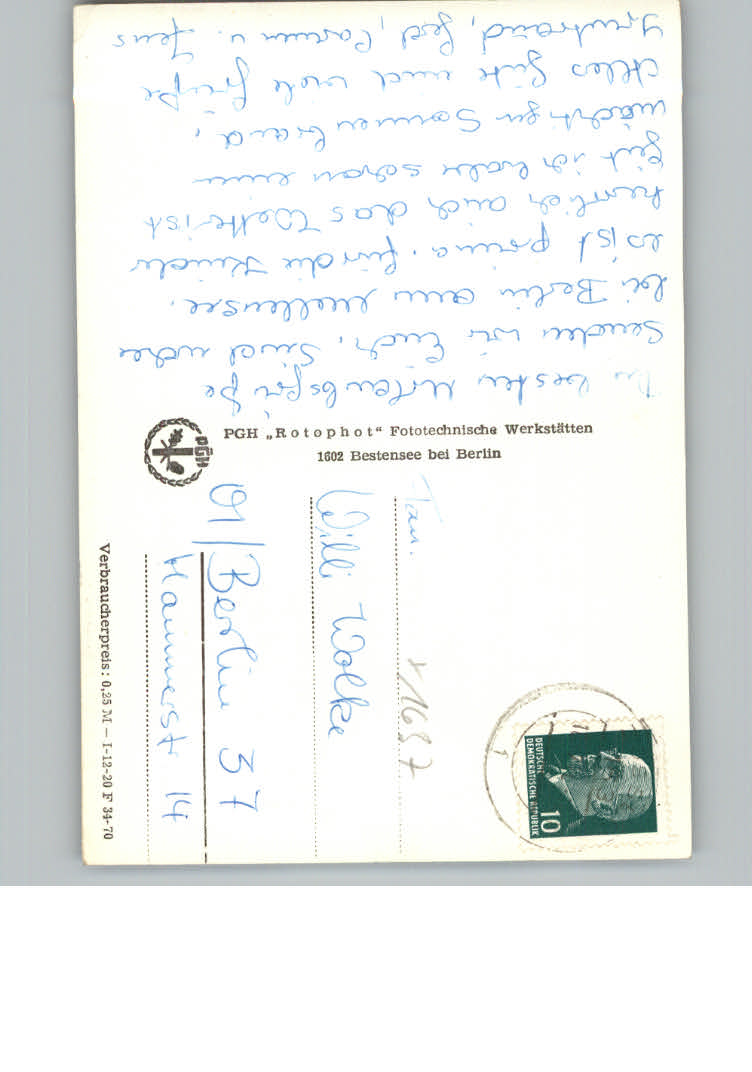 besten Urlaubsgrüße
senden wir Euch. Sind
bei Berlin am Mellensee.
es ist prima. für die Kinder
herrlich auch das Wetter ist
gut ich habe schon einen
mächtigen Sonnenbrand,
Alles Gute und viele Grüße
Gerd, Carmen u. Jens
PGH „Rotophot“ Fototechnische Werkstätten
1602 Bestensee bei Berlin
PGH
Fam.
Willi Wolke
Berlin 37
Hammerstr 14
1637
DEUTSCHE
DEMOKRATISCHE REPUBLIK
10
Verbraucherpreis: 0,25 M — I-12-20 F 34-70